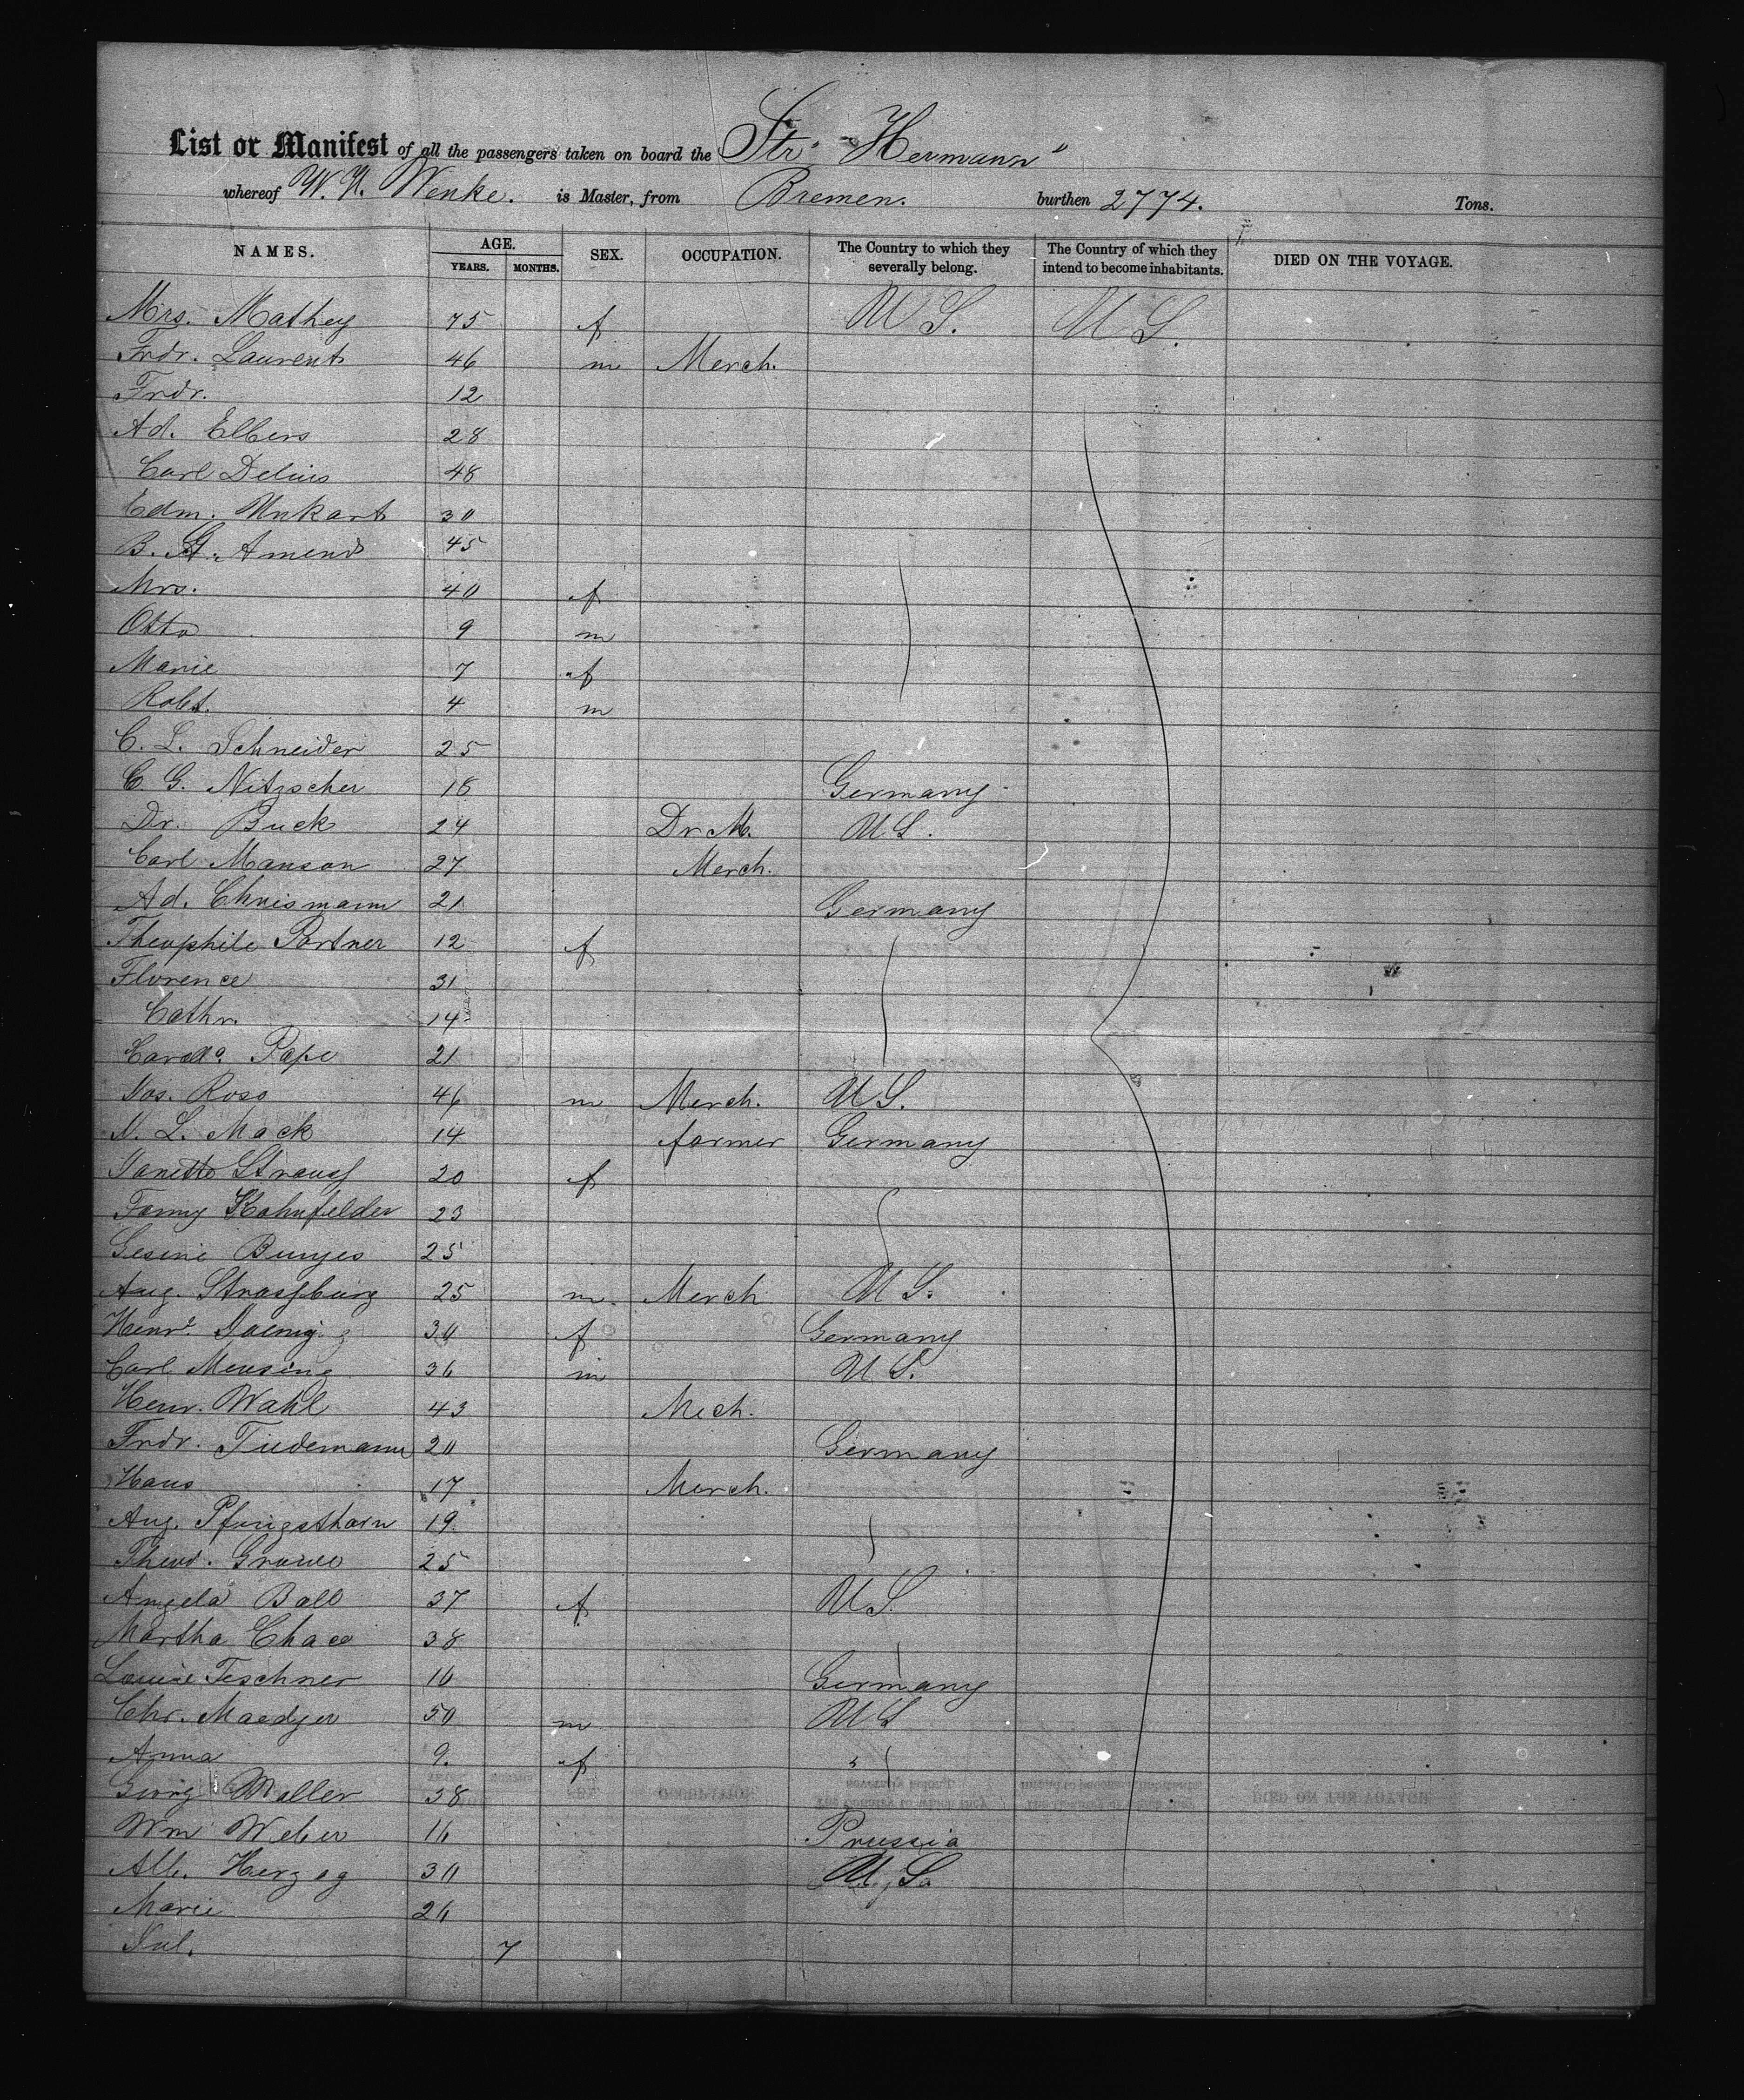 List or Manifest of all the passengers taken on board the Str. "Hermann"
whereof W. H. Wenke. is Master, from Bremen. burthen 2774. Tons.
NAMES. AGE. YEARS. MONTHS. SEX. OCCUPATION. The Country to which they severally belong. The Country of which they intend to become inhabitants. DIED ON THE VOYAGE.
Mrs. Mathey 75 f U S. U S.
Frdr. Laurent 46 m Merch.
Frdr. 12
Ad. Elbers 28
Carl Delius 48
Edm. Unkart 30
B. G. Amend 45
Mrs. 40 f
Otto 9 m
Marie 7 f
Robt. 4 m
C. L. Schneider 25
C. G. Nitzscher 18 Germany
Dr. Buck 24 Dr M. U S.
Carl Manson 27 Merch.
Ad. Chrismann 21 Germany
Theophile Portner 12 f
Florence 31
Cathr. 14
Pape 21
Jos. Ross 46 m Merch. U S.
N. L. Mack 14 farmer Germany
Nanette Strauß 20 f
Fanny Kohnfelder 23
Gesine Bunjes 25
Aug. Straßburg 25 m Merch U S.
Henrt. 30 f Germany
Carl Mensing 36 m U S.
Henr. Wahl 43 Mech.
Frdr. Tiedemann 20 Germany
Hans 17 Merch.
Aug. Pfingsthorn 19
Theod. 25
Angela Ball 37 f U S.
Martha Chace 38
Louise Teschner 10 Germany
Chr. Maedger 50 m U S
Anna 9. f "
Georg Waller 38
Wm Weber 16 Prussia
Alb. Herzog 30 U. S.
Marie 26
Jul. 7